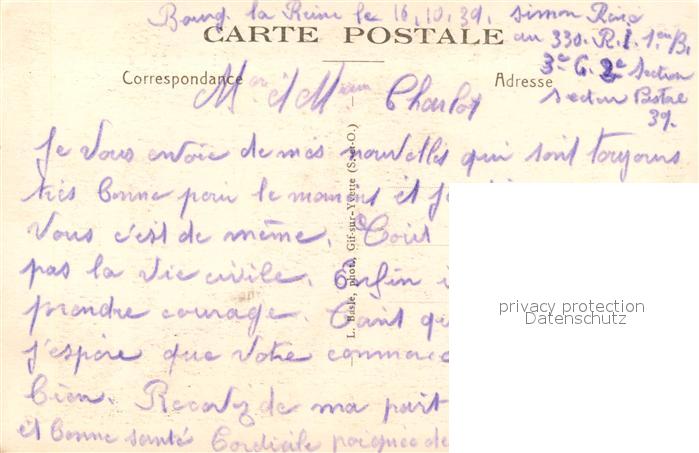 Bourg. la Reine le 16.10.39. simon
CARTE POSTALE
au 330. R.I. 1er B.
3e C. 2e Section
Correspondance
Adresse
secteur Postal
39.
Mr et Mme Charlot
Je vous envoie de mes nouvelles qui sont toujours
très bonne pour le moment et
vous c'est de même. Tout
pas la vie civile. Enfin
prendre courage. Tant
j'espère que votre commerce
bien. Recevez de ma part
et bonne santé Cordiale poignée de
L. Basle, phot., Gif-sur-Yvette (S.-et-O.)
privacy protection
Datenschutz